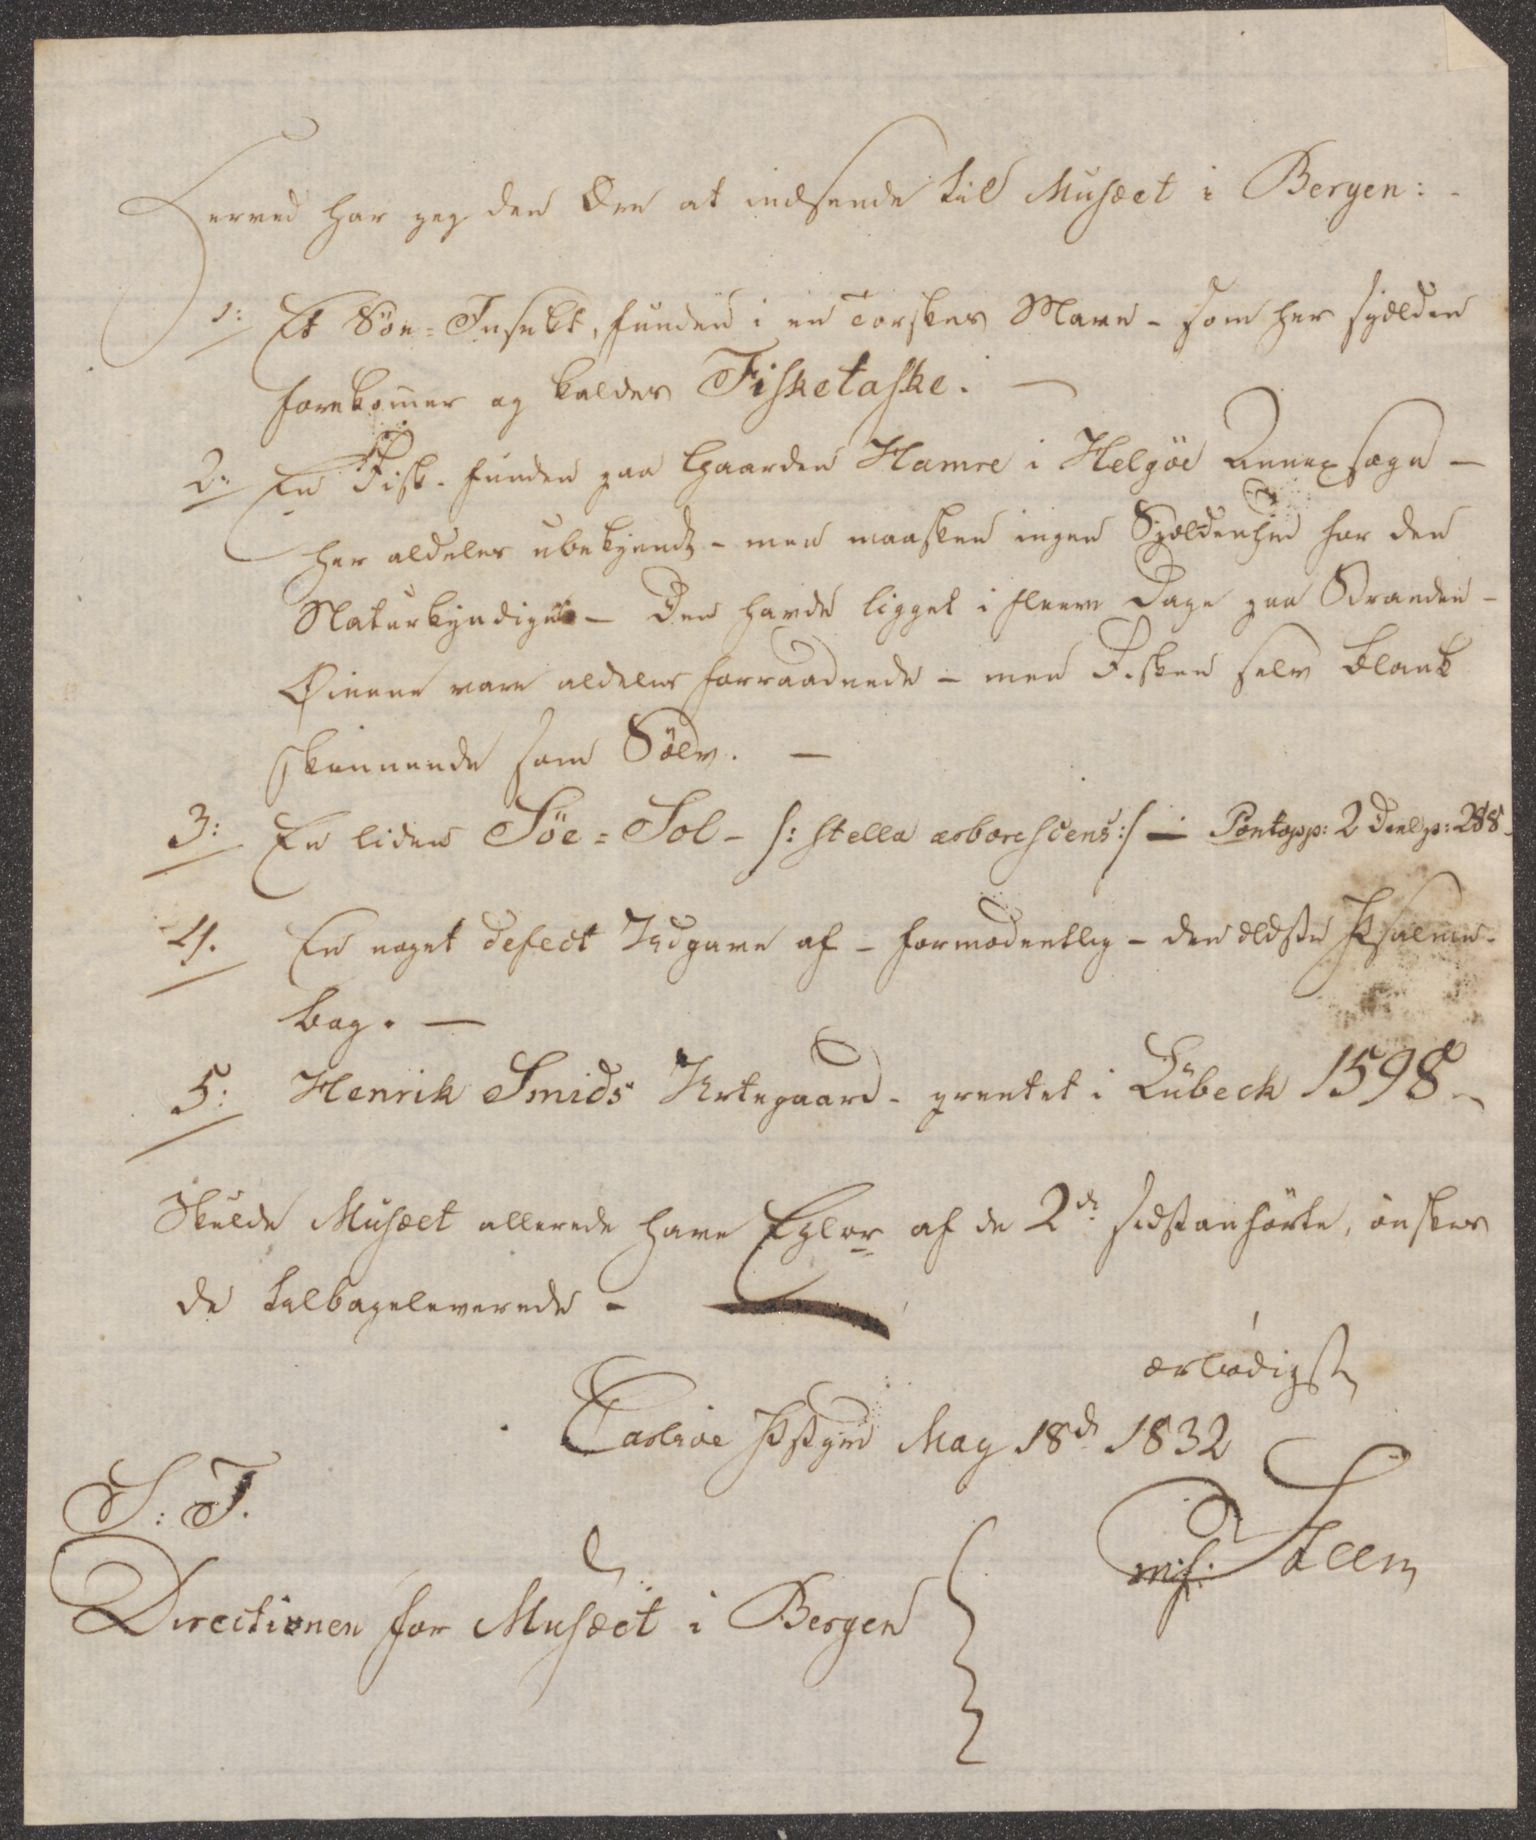 Herved har jeg den Ære at indsende til Musæet i Bergen: -
1: Et Söe=Insekt, funden i en Torskes Mave - som her sjælden
forekommer og kaldes Fisketaske. —
2: En Fisk. funden paa Gaarden Hamre i Helgöe Annexsogn —
her aldeles ubekjendt - men maaskee ingen Sjeldenhed for den
Naturkyndige — Den havde ligget i fleere Dage paa Stranden -
Øinene vare aldeles forraadnede - men Fisken selv blank
skinnende som Sölv. —
3: En liden Söe=Sol - /: stella arborescens :/ — Pontopp: 2 Deel p: 288.
4. En noget defect Udgave af - formodentlig - den ældste Psalme-
bog. —
5: Henrik Smids Urtegaard - prentet i Lübeck 1598 -
Skulde Musæet allerede have Explor af de 2de sidstanförte, önskes
de tilbageleverede -
ærbödigst
Carlsöe Pstgrd May 18de 1832
S: T.
Steen
Directionen for Musæet i Bergen